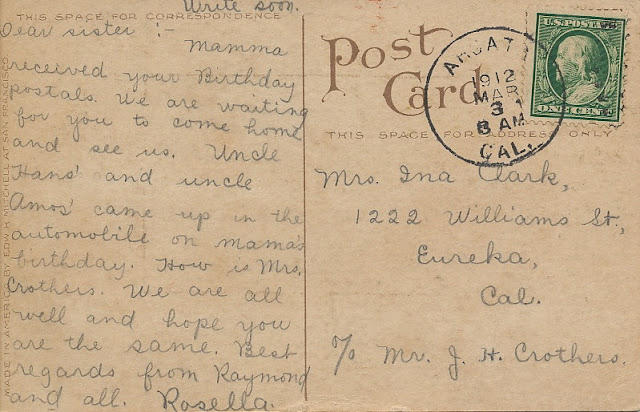 Write soon.
THIS SPACE FOR CORRESPONDENCE
Dear sister :-
Mamma
received your Birthday
postals. We are waiting
for you to come home
and see us. Uncle
Hans' and uncle
Amos' came up in the
automobile on mama's
birthday. How is Mrs.
Crothers. We are all
well and hope you
are the same. Best
regards from Raymond
and all. Rosella.
MADE IN AMERICA BY EDW H MITCHELL AT SAN FRANCISCO
Post
Card
THIS SPACE FOR ADDRESS ONLY
1912
MAR
3
8 AM
CAL.
U.S. POSTAGE
ONE CENT
Mrs. Ina Clark,
1222 Williams St.,
Eureka,
Cal.
% Mr. J. H. Crothers.